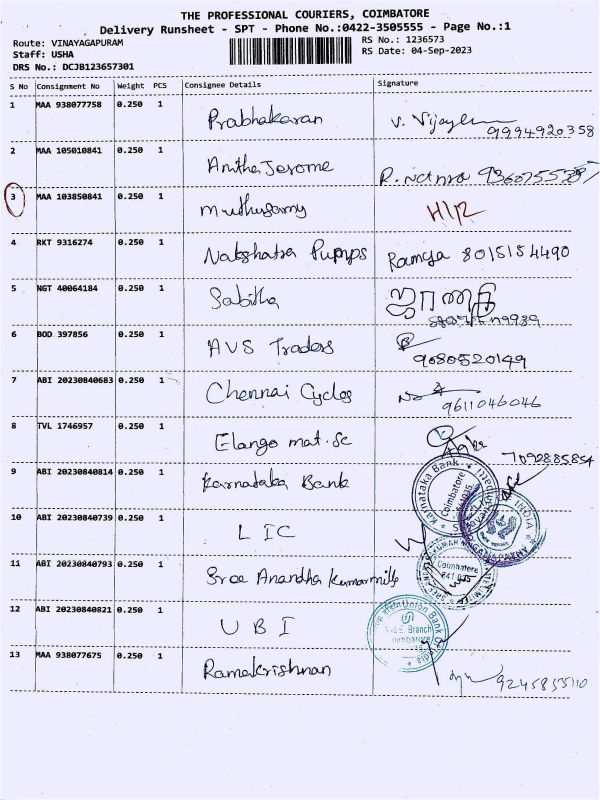 THE PROFESSIONAL COURIERS, COIMBATORE
Delivery Runsheet - SPT - Phone No.:0422-3505555 - Page No.:1
Route: VINAYAGAPURAM
Staff: USHA
DRS No.: DCJB123657301
RS No.: 1236573
RS Date: 04-Sep-2023
S No Consignment No Weight PCS Consignee Details Signature
1 MAA 938077758 0.250 1 Prabhakaran V. Vijay
9994920358
2 MAA 105010841 0.250 1 Anitha Jerome
3 MAA 103850841 0.250 1 Muthusamy H/R
4 RKT 9316274 0.250 1 Nakshatra Pumps Ramya 8015154490
5 NGT 40064184 0.250 1 Sabitha
6 BOD 397856 0.250 1 AVS Traders
9080520149
7 ABI 20230840683 0.250 1 Chennai Cycles
9611046046
8 TVL 1746957 0.250 1 Elango mat. Sc
7092885854
9 ABI 20230840814 0.250 1 Karnataka Bank
Karnataka Bank
Coimbatore
10 ABI 20230840739 0.250 1 LIC
INDIA
11 ABI 20230840793 0.250 1 Sree Anandha Kumar mills
Coimbatore
641 035
12 ABI 20230840821 0.250 1 UBI
Union Bank of India
Branch
Coimbatore
13 MAA 938077675 0.250 1 Ramakrishnan
9245855110